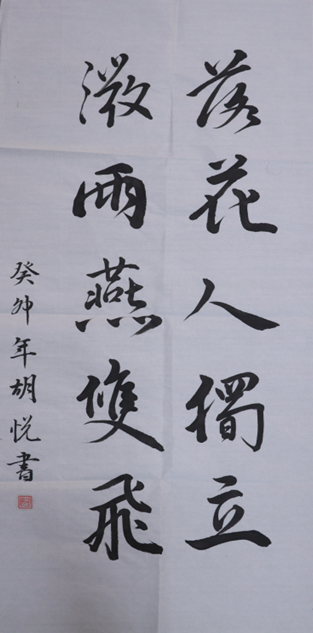 落花人獨立
微雨燕雙飛
癸卯年胡悦書